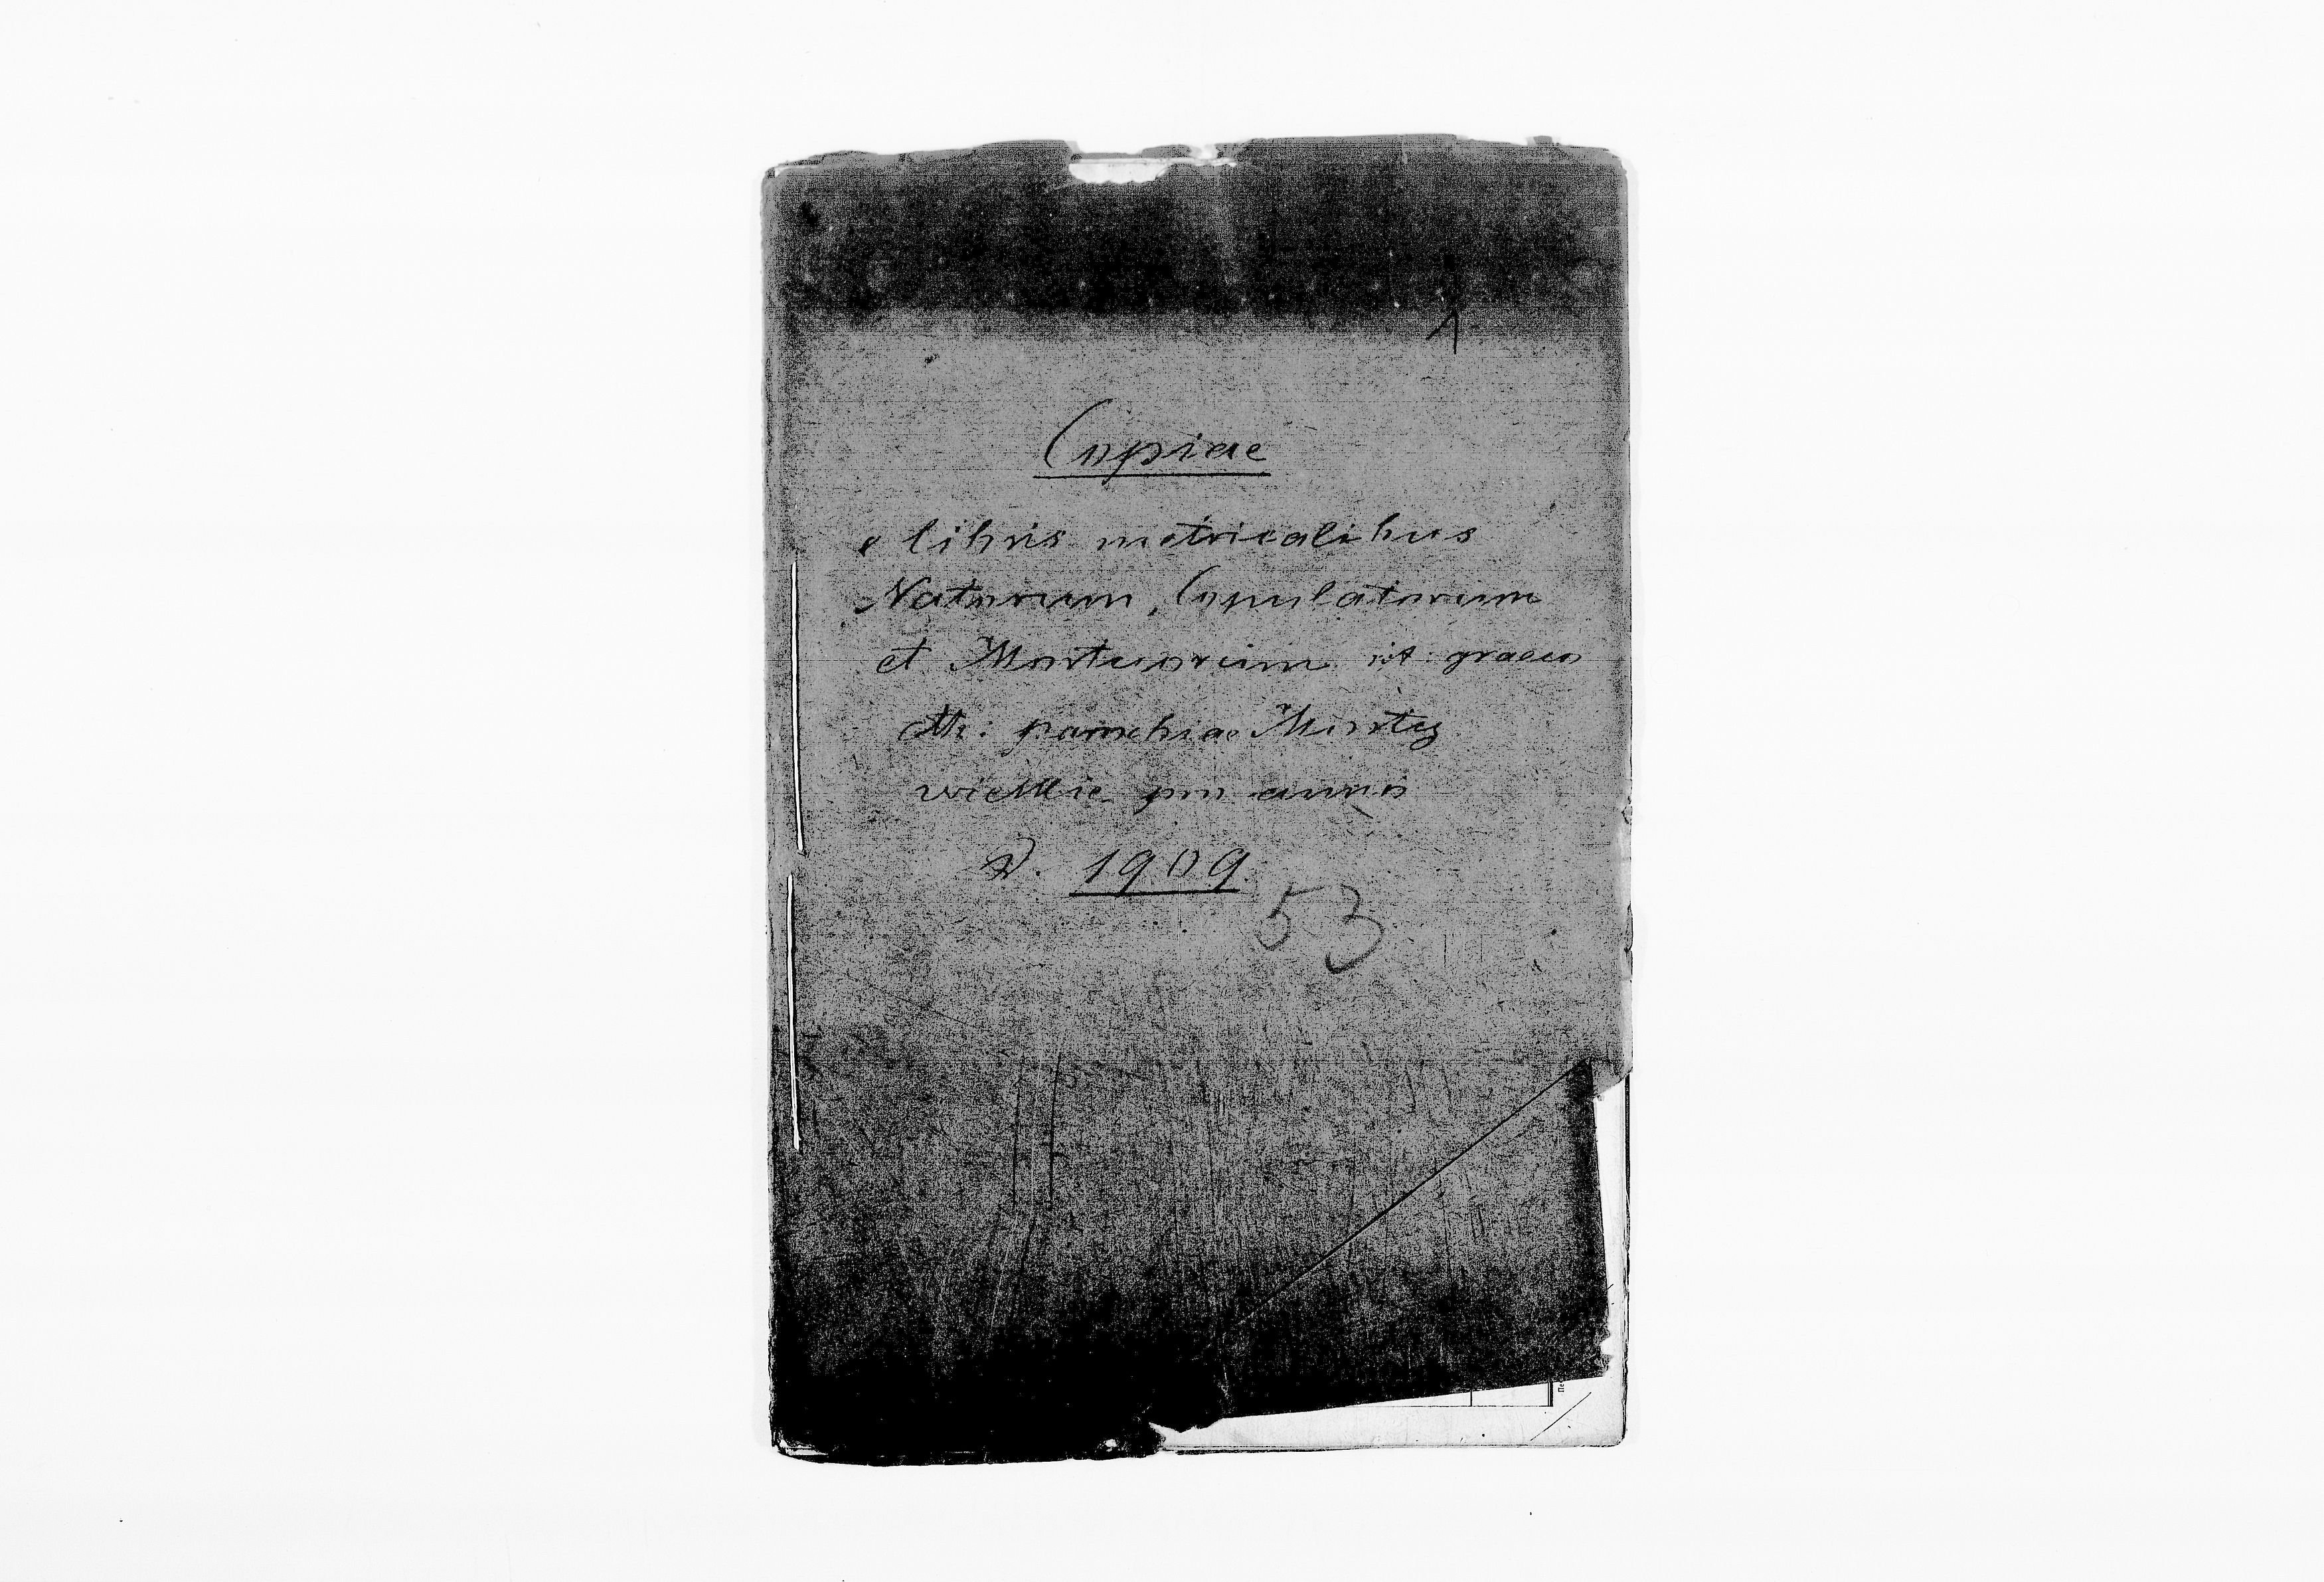 1
Copiae
e libris metricalibus
Natorum, Copulatorum
et Mortuorum rit: graeco
cth: parochiae Mosty
wielkie pro anno
D. 1909.
53